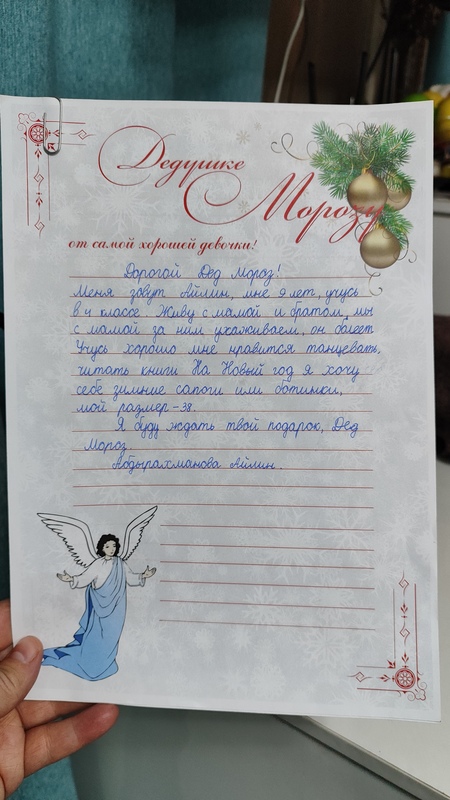 Дедушке
Морозу
от самой хорошей девочки!
Дорогой Дед Мороз!
Меня зовут Айлин, мне 9 лет, учусь
в 4 классе. Живу с мамой и братом, мы
с мамой за ним ухаживаем, он болеет
Учусь хорошо мне нравится танцевать,
читать книги На Новый год я хочу
себе зимние сапоги или ботинки,
мой размер-38.
Я буду ждать твой подарок, Дед
Мороз.
Абдырахманова Айлин.